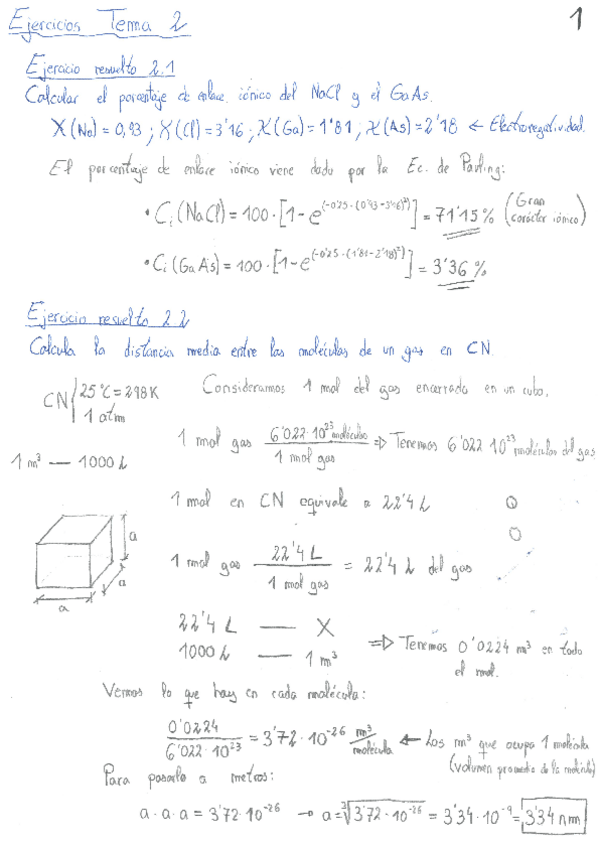 Ejercicios Tema 2
1
Ejercicio resuelto 2.1
Calcular el porcentaje de enlace iónico del NaCl y el GaAs.
X(Na) = 0,93 ; X(Cl) = 3'16 ; X(Ga) = 1'81 ; X(As) = 2'18 ← Electronegatividad.
El porcentaje de enlace iónico viene dado por la Ec. de Pauling:
• Ci (NaCl) = 100 · [1 - e^(-0'25 · (0'93-3'16)²)] = 71'15 % (Gran carácter iónico)
• Ci (GaAs) = 100 · [1 - e^(-0'25 · (1'81-2'18)²)] = 3'36 %
Ejercicio resuelto 2.2
Calcula la distancia media entre las moléculas de un gas en CN.
CN { 25 °C = 298 K
1 atm
Consideramos 1 mol del gas encerrado en un cubo.
1 mol gas 6'022·10²³ moléculas / 1 mol gas ⇒ Tenemos 6'022·10²³ moléculas del gas
1 m³ — 1000 L
1 mol en CN equivale a 22'4 L
a
a
a
1 mol gas 22'4 L / 1 mol gas = 22'4 L del gas
22'4 L — X
1000 L — 1 m³
⇒ Tenemos 0'0224 m³ en todo
el mol.
Vemos lo que hay en cada molécula:
0'0224 / 6'022·10²³ = 3'72·10⁻²⁶ m³/molécula ← Los m³ que ocupa 1 molécula
(volumen promedio de la molécula)
Para pasarlo a metros:
a · a · a = 3'72·10⁻²⁶ → a = ∛3'72·10⁻²⁶ = 3'34·10⁻⁹ = 3'34 nm